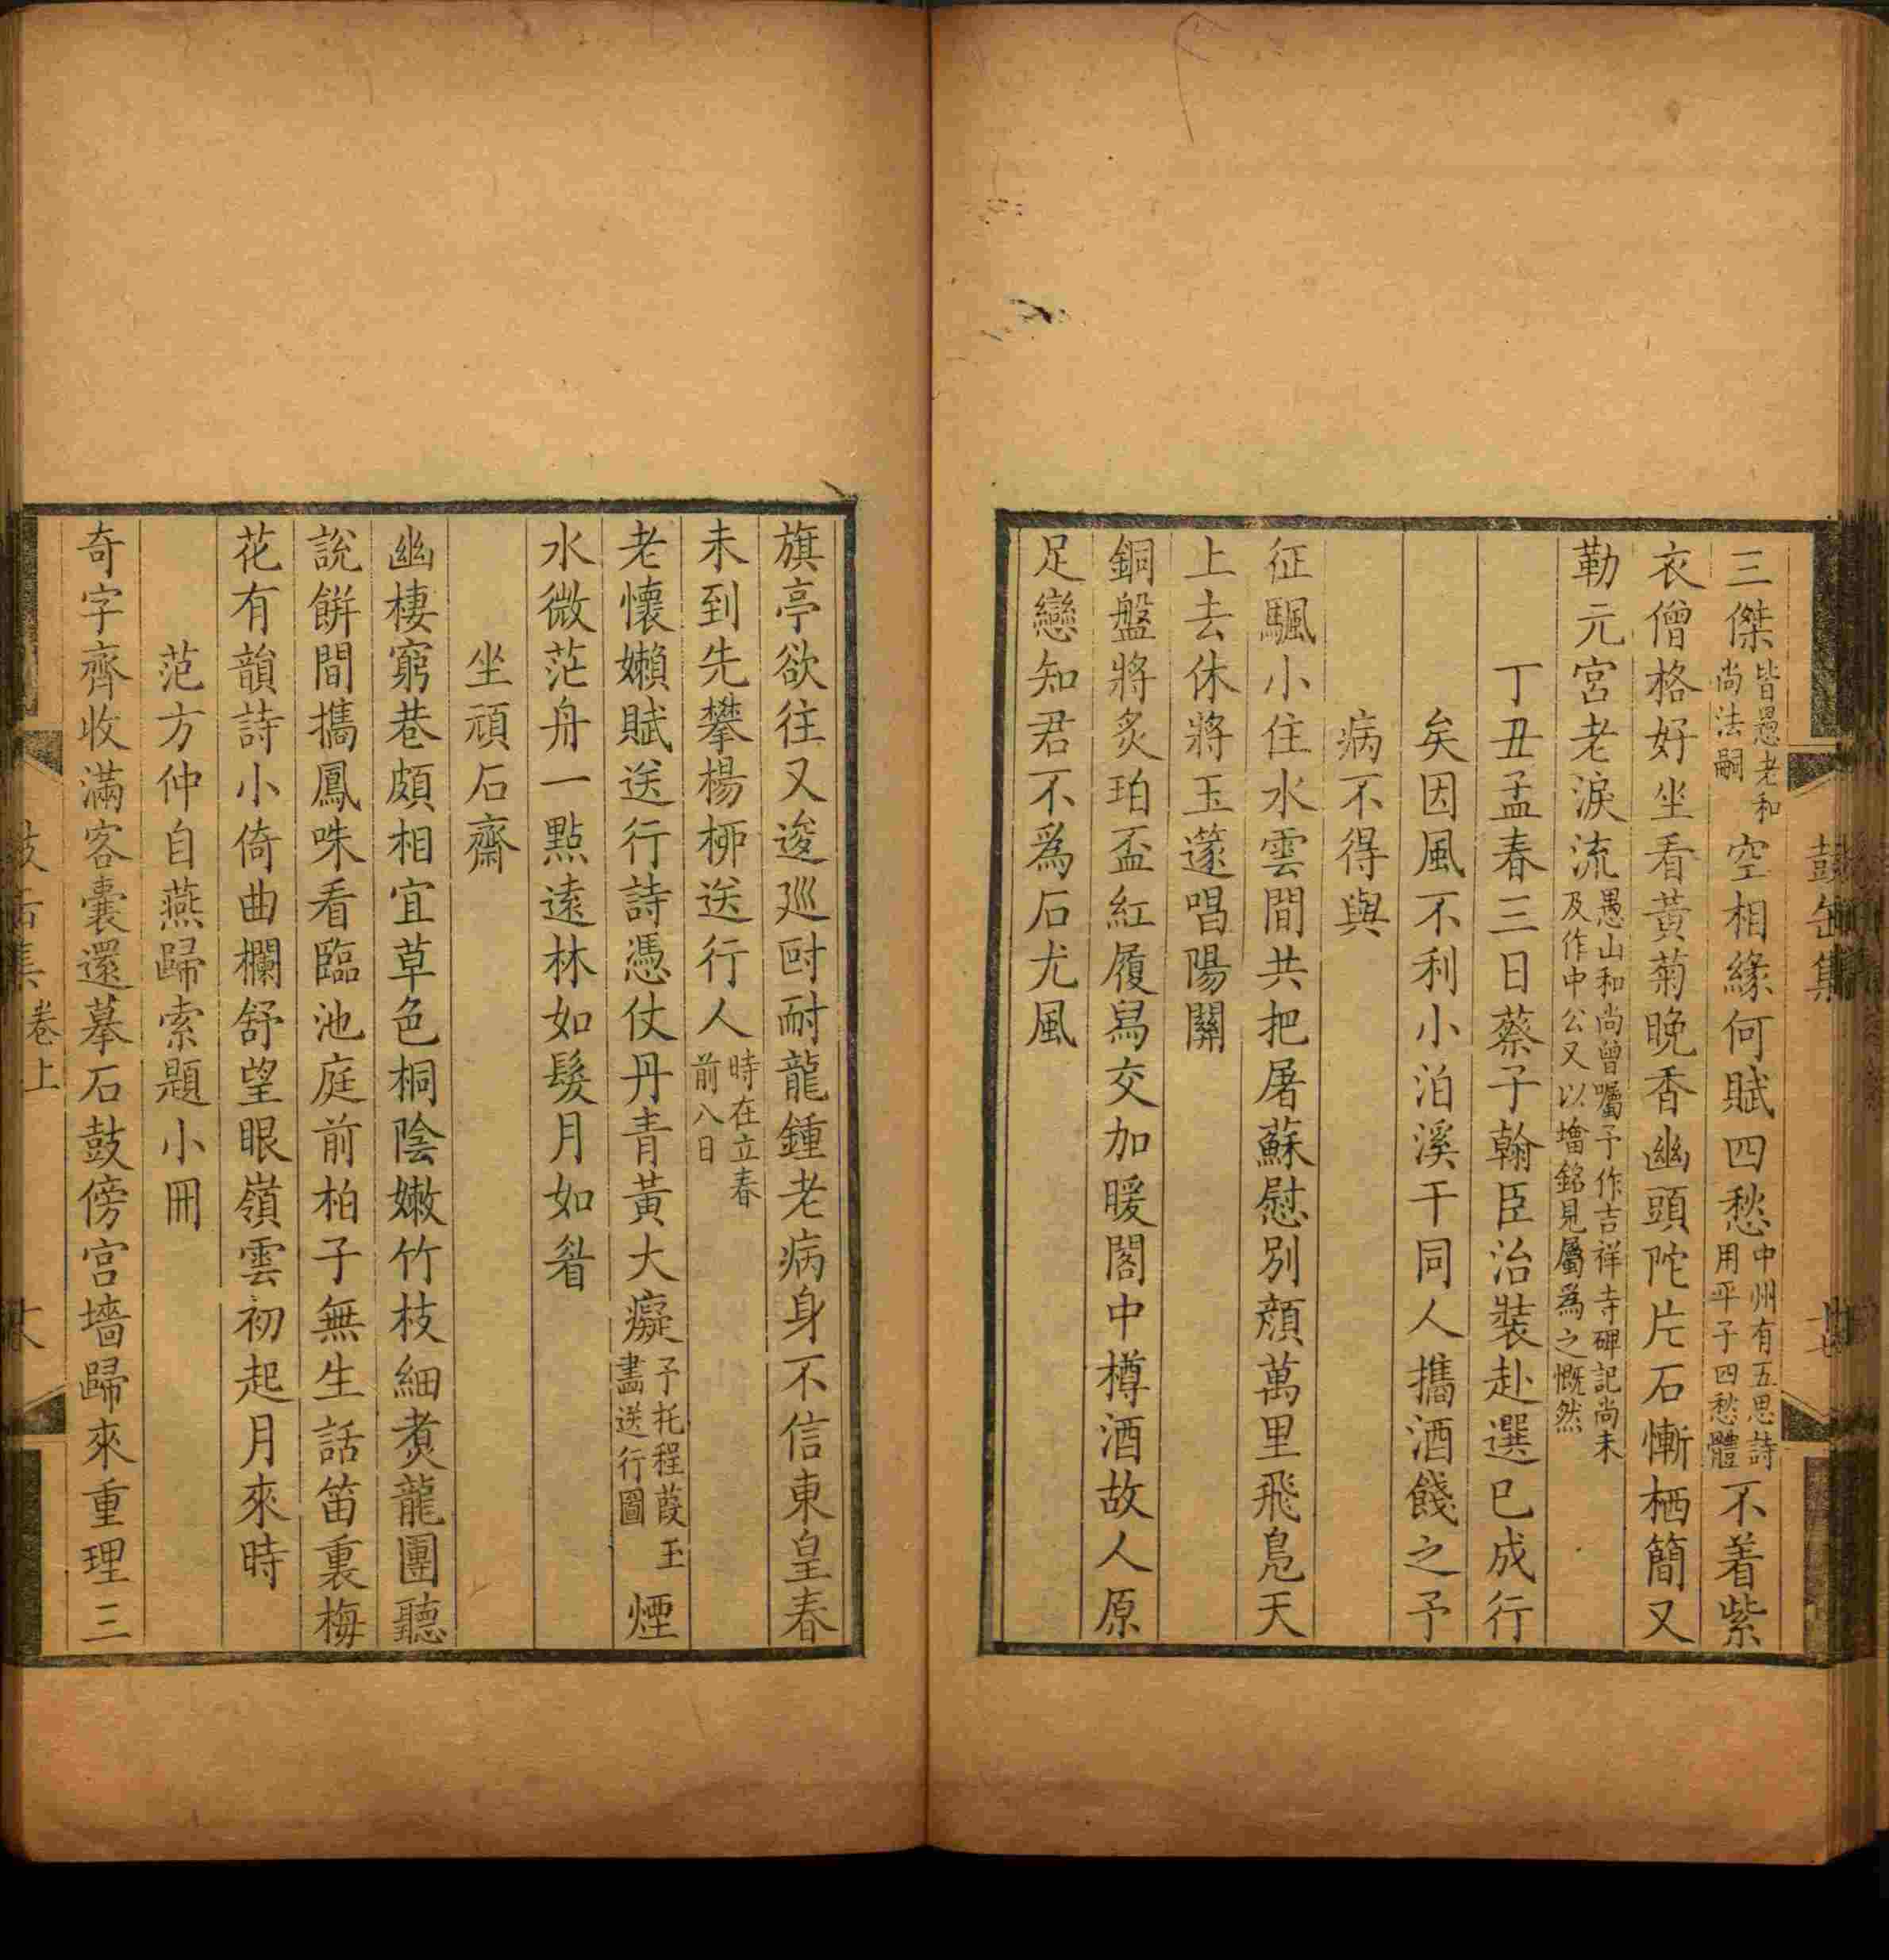 三傑皆愚老和尚法嗣空相緣何賦四愁中州有五思詩用平子四愁體不着紫
衣僧格好坐看黃菊晚香幽頭陀片石慚栖簡又
勒元宮老淚流愚山和尚曾囑予作吉祥寺碑記尚未及作中公又以墖銘見屬為之慨然
丁丑孟春三日蔡子翰臣治裝赴選巳成行
矣因風不利小泊溪干同人攜酒餞之予
病不得與
征颿小住水雲間共把屠蘇慰別顏萬里飛鳧天
上去休將玉篴唱陽關
銅盤將炙珀盃紅履舄交加暖閣中樽酒故人原
足戀知君不爲石尤風
旗亭欲往又逡廵酎龍鍾老病身不信東皇春
未到先攀楊栁送行人時在立春前八日
老懷嬾賦送行詩憑仗丹青黃大癡予托程葭玉畫送行圖煙
水微茫舟一點遠林如髮月如眉
坐頑石齋
幽棲窮巷頗相宜草色桐陰嫩竹枝細煑龍團聽
說餅間攜鳳咮看臨池庭前柏子無生話笛裏梅
花有韻詩小倚曲欄舒望眼嶺雲初起月來時
范方仲自燕歸索題小冊
奇字齊收滿客囊還摹石鼓傍宮墻歸來重理三
卷上